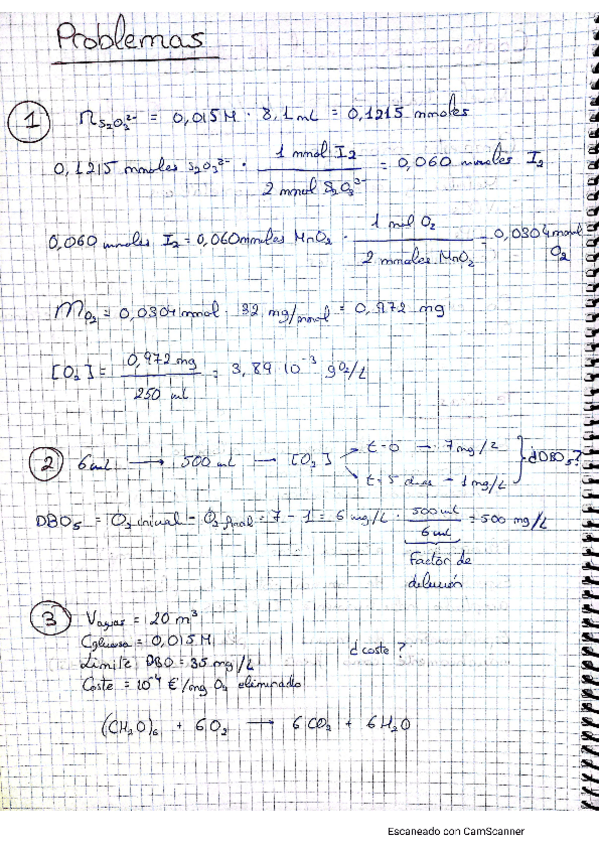 Problemas
1 n S₂O₃²⁻ = 0,015M · 8,1 mL = 0,1215 mmoles
0,1215 mmoles S₂O₃²⁻ · 1 mmol I₂ / 2 mmol S₂O₃²⁻ = 0,060 mmoles I₂
0,060 mmoles I₂ = 0,060 mmoles MnO₂ · 1 mol O₂ / 2 mmoles MnO₂ = 0,0304 mmol O₂
m O₂ = 0,0304 mmol · 32 mg/mmol = 0,972 mg
[O₂] = 0,972 mg / 250 ml = 3,89 10⁻³ g O₂/L
2 6 mL → 500 mL → [O₂] t=0 → 7 mg/L
t=5 días → 1 mg/L } ¿DBO₅?
DBO₅ = O₂ inicial - O₂ final = 7 - 1 = 6 mg/L · 500 mL / 6 mL = 500 mg/L
Factor de
dilución
3 V aguas = 20 m³
C glucosa = 0,015 M
Límite DBO = 35 mg/L ¿coste?
Coste = 10⁻⁴ €/mg O₂ eliminado
(CH₂O)₆ + 6O₂ → 6CO₂ + 6H₂O
Escaneado con CamScanner